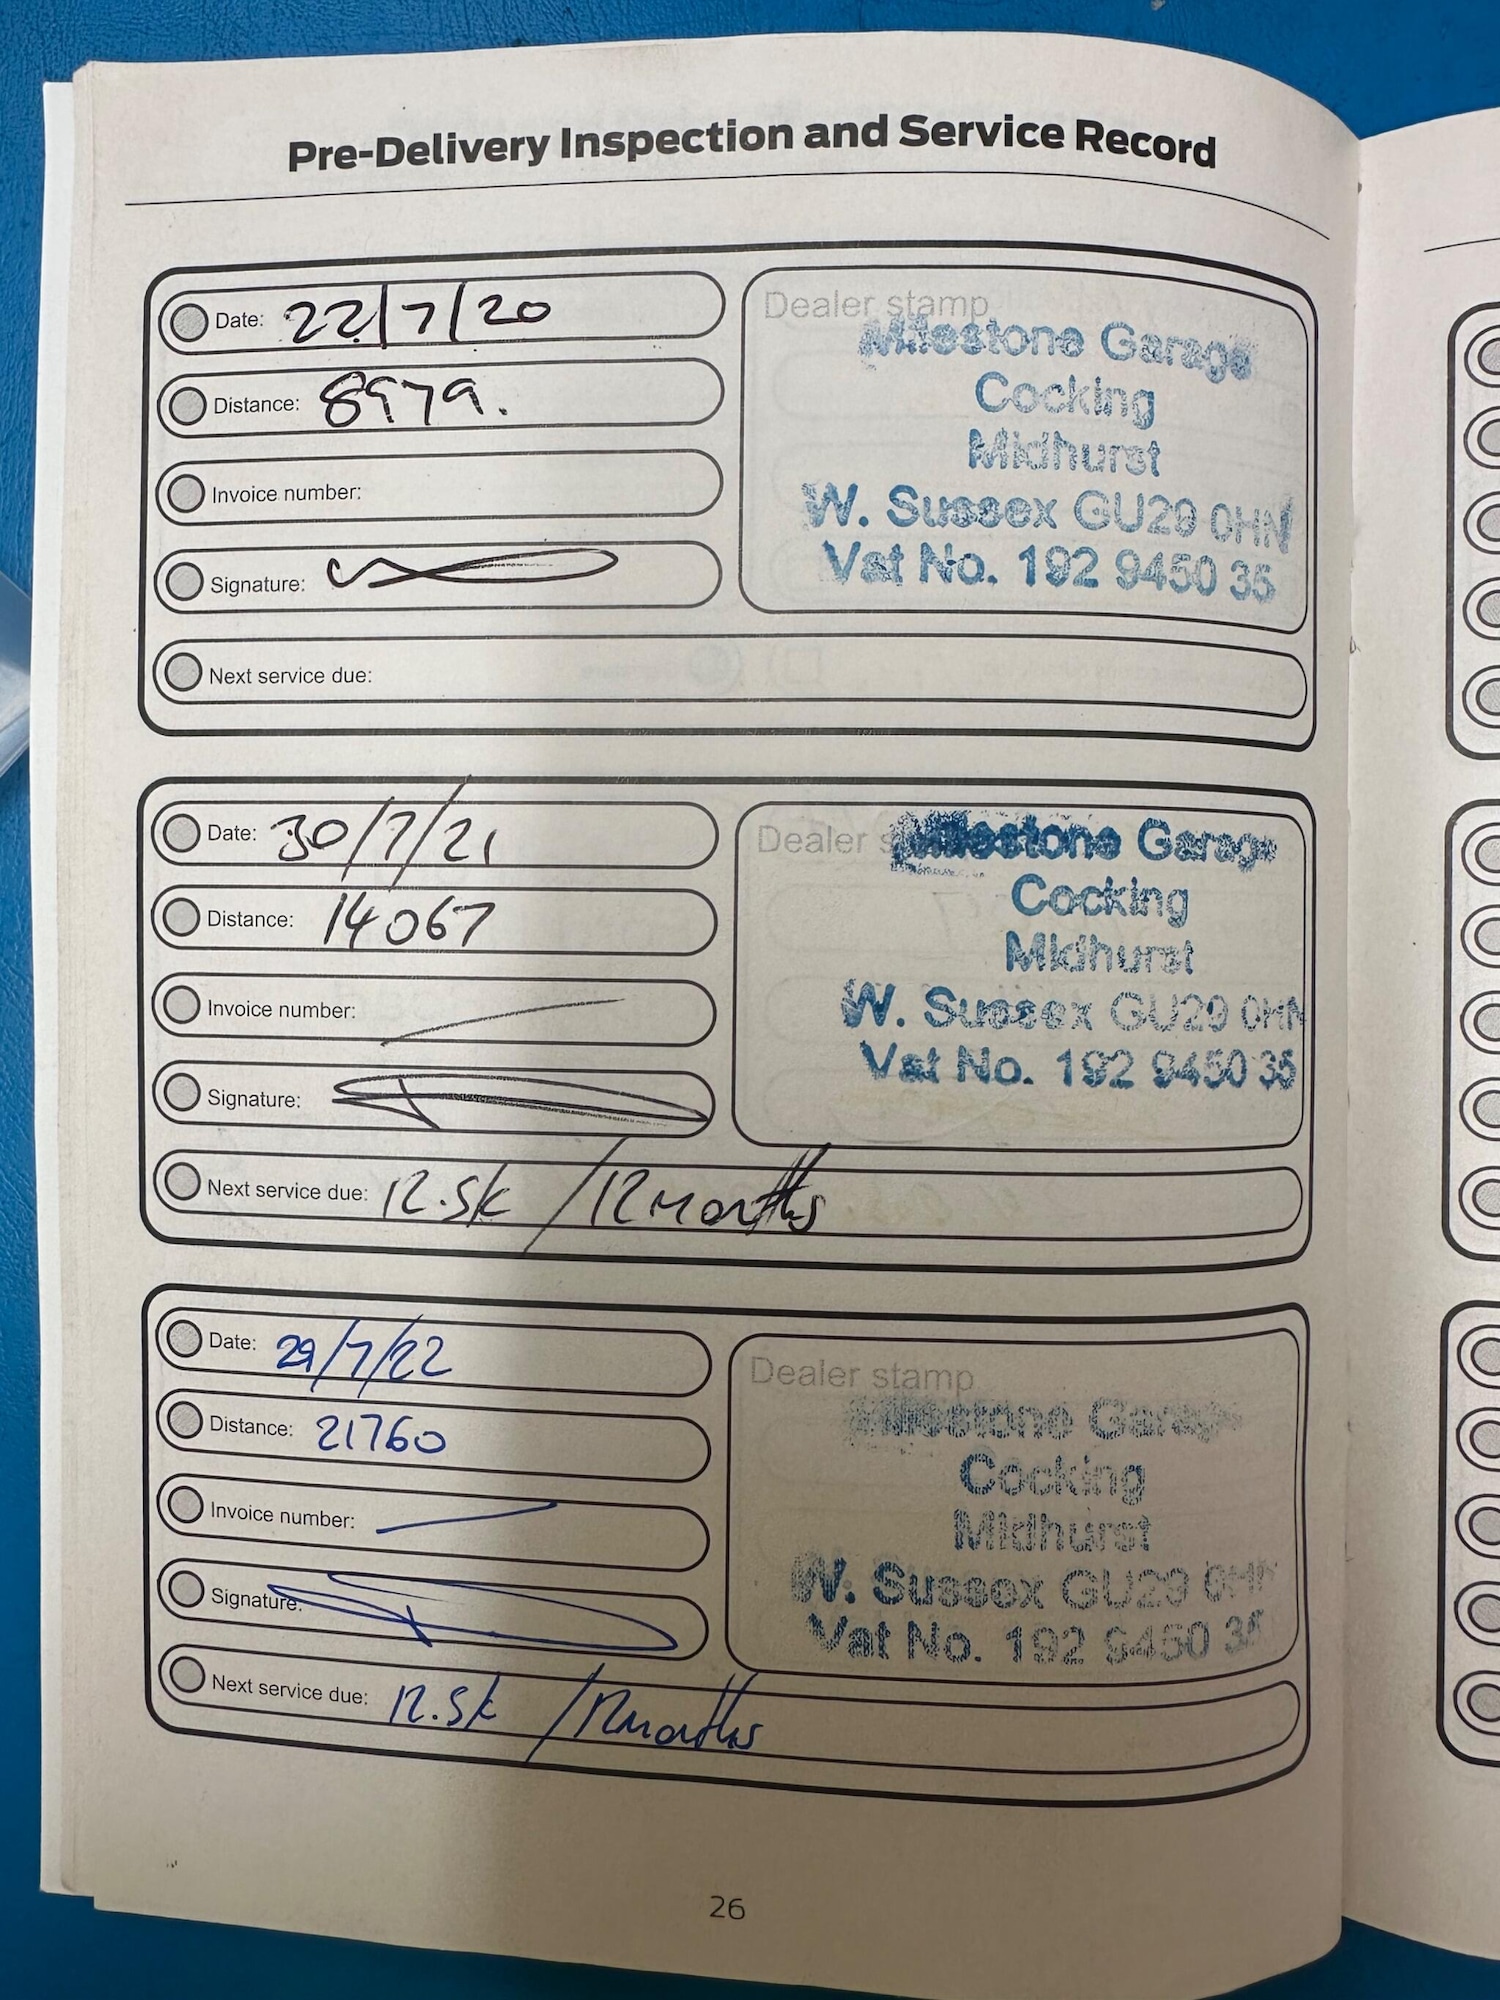 Pre-Delivery Inspection and Service Record
Date: 22/7/20
Distance: 8979.
Invoice number:
Signature:
Next service due:
Dealer stamp
Milestone Garage
Cocking
Midhurst
W. Sussex GU29 0HN
Vat No. 192 9450 35
Date: 30/7/21
Distance: 14067
Invoice number:
Signature:
Next service due: 12.5k / 12 months
Dealer s
Milestone Garage
Cocking
Midhurst
W. Sussex GU29 0HN
Vat No. 192 9450 35
Date: 29/7/22
Distance: 21760
Invoice number:
Signature:
Next service due: 12.5k / 12 months
Dealer stamp
Milestone Garage
Cocking
Midhurst
W. Sussex GU29 0HN
Vat No. 192 9450 35
26